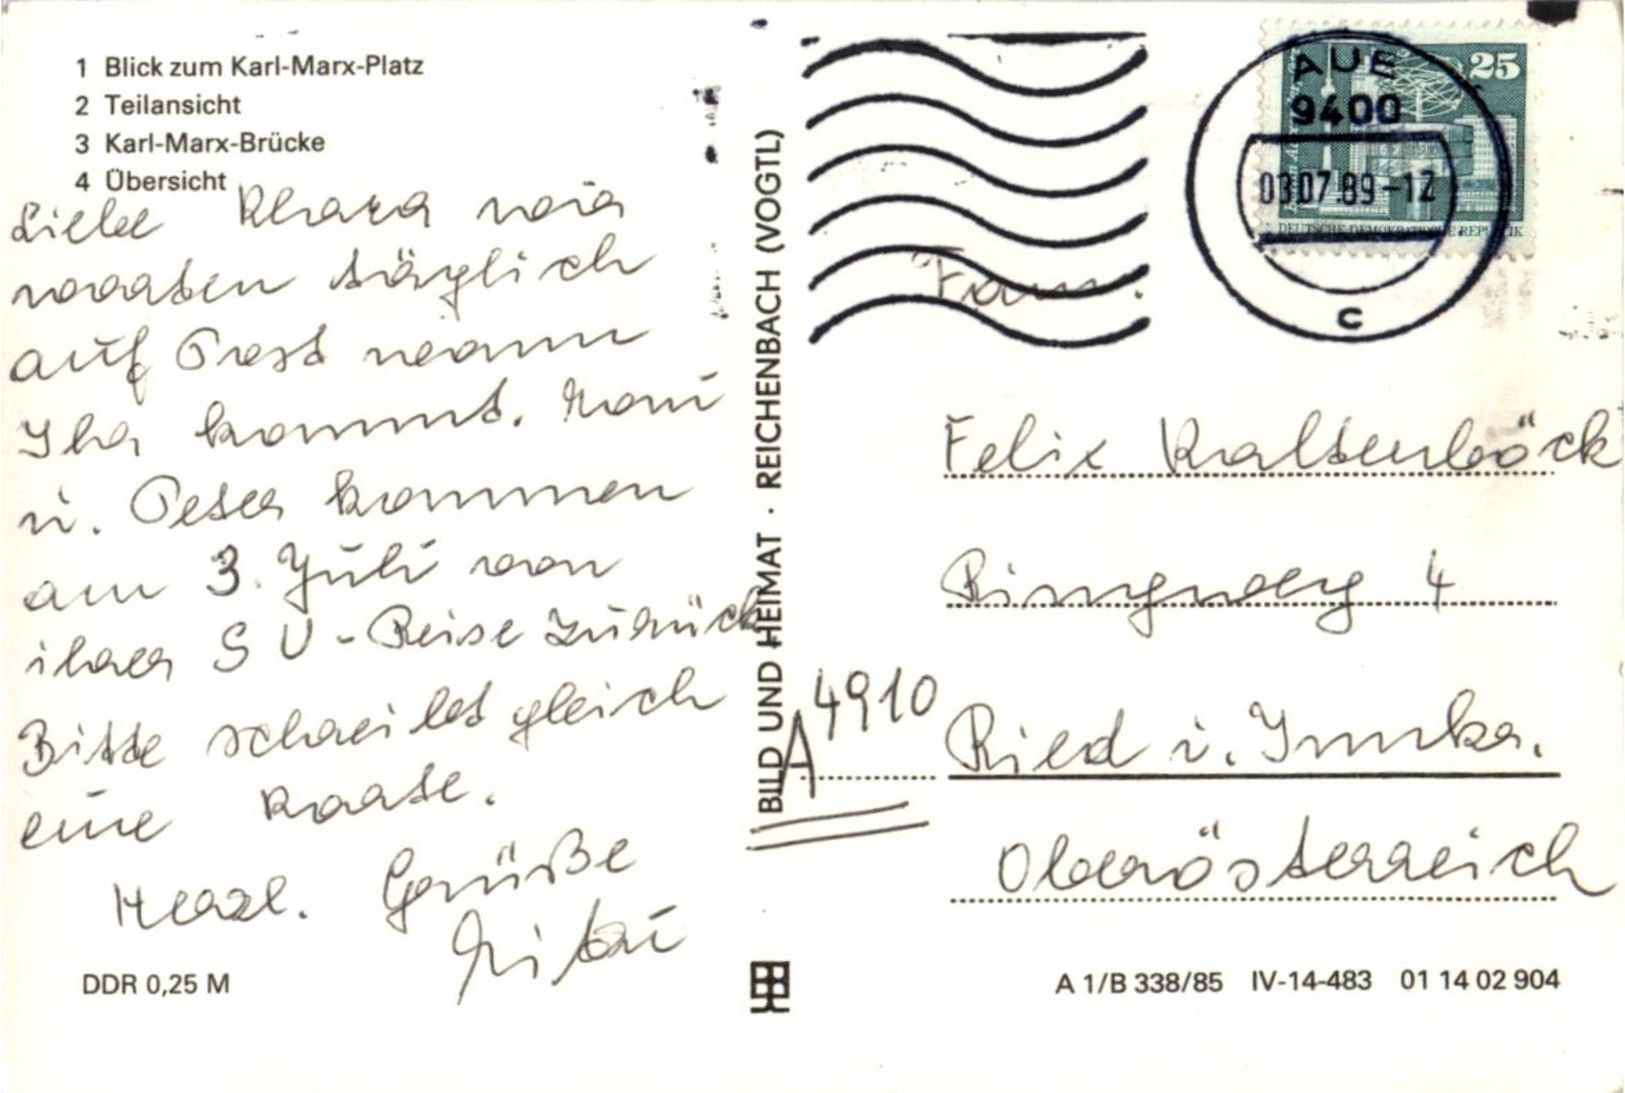 1 Blick zum Karl-Marx-Platz
2 Teilansicht
3 Karl-Marx-Brücke
4 Übersicht
Liebe Klara wir
warten täglich
auf Post wann
Ihr kommt.
u. Peter kommen
am 3. Juli von
ihrer SU-Reise zurück
Bitte schreibt gleich
eine Karte.
Herzl. Grüße
DDR 0,25 M
BILD UND HEIMAT · REICHENBACH (VOGTL)
25
DEUTSCHE DEMOKRATISCHE REPUBLIK
AUE
9400
03.07.89-12
c
Fam.
Felix Kaltenböck
Ringweg 4
A 4910
Ried i. Innkr.
Oberösterreich
A 1/B 338/85 IV-14-483 01 14 02 904